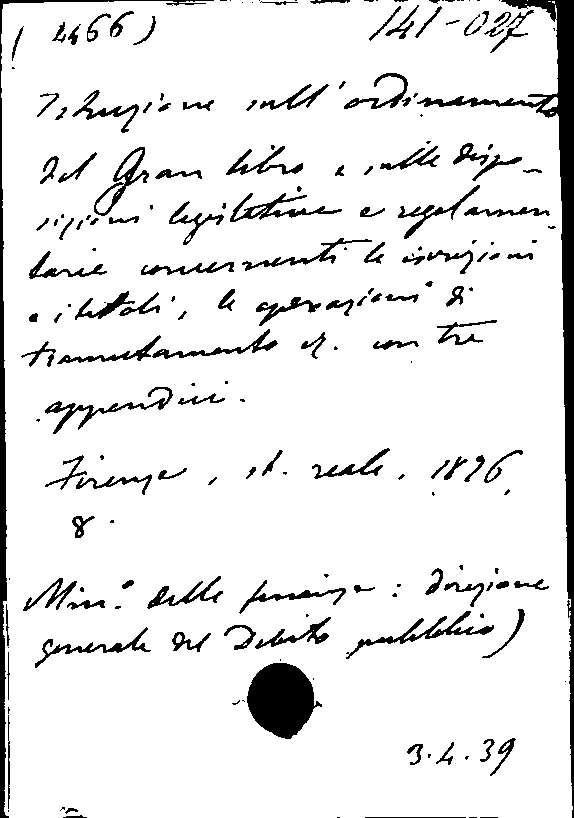 (4466) 141-027
Istruzione sull'ordinamento
del Gran libro e sulle dispo-
sizioni legislative e regolamen-
tarie concernenti le iscrizioni
e i titoli, le operazioni di
tramutamento ec. con tre
appendici.
Firenze, st. reale, 1876,
8.
Min.° delle finanze: direzione
generale del Debito pubblico)
3.4.39